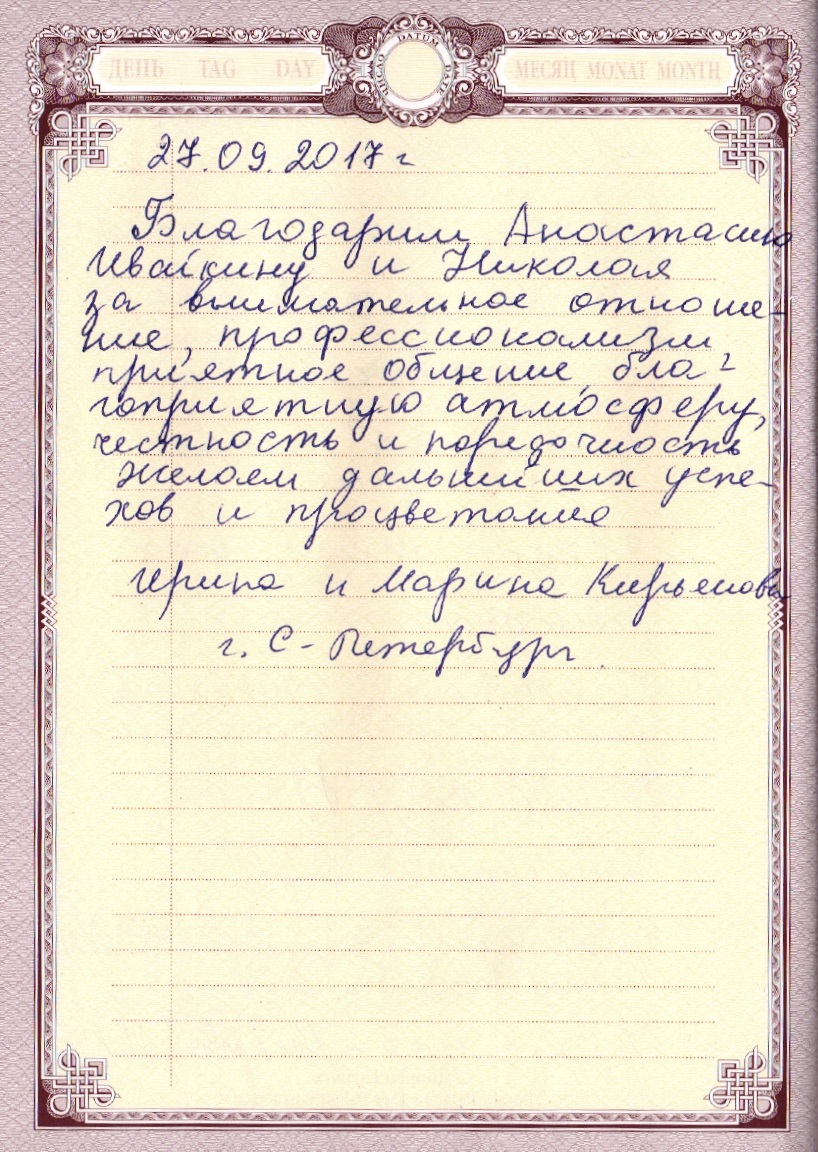 ДЕНЬ TAG DAY
ЧИСЛО DATUM DATE
МЕСЯЦ MONAT MONTH
27.09.2017 г
Благодарим Анастасию
Ивайкину и Николая
за внимательное отноше-
ние, профессионализм
приятное общение, бла-
гоприятную атмосферу,
честность и порядочность
Желаем дальнейших успе-
хов и процветания
Ирина и Марина Кирьяновы
г. С-Петербург.